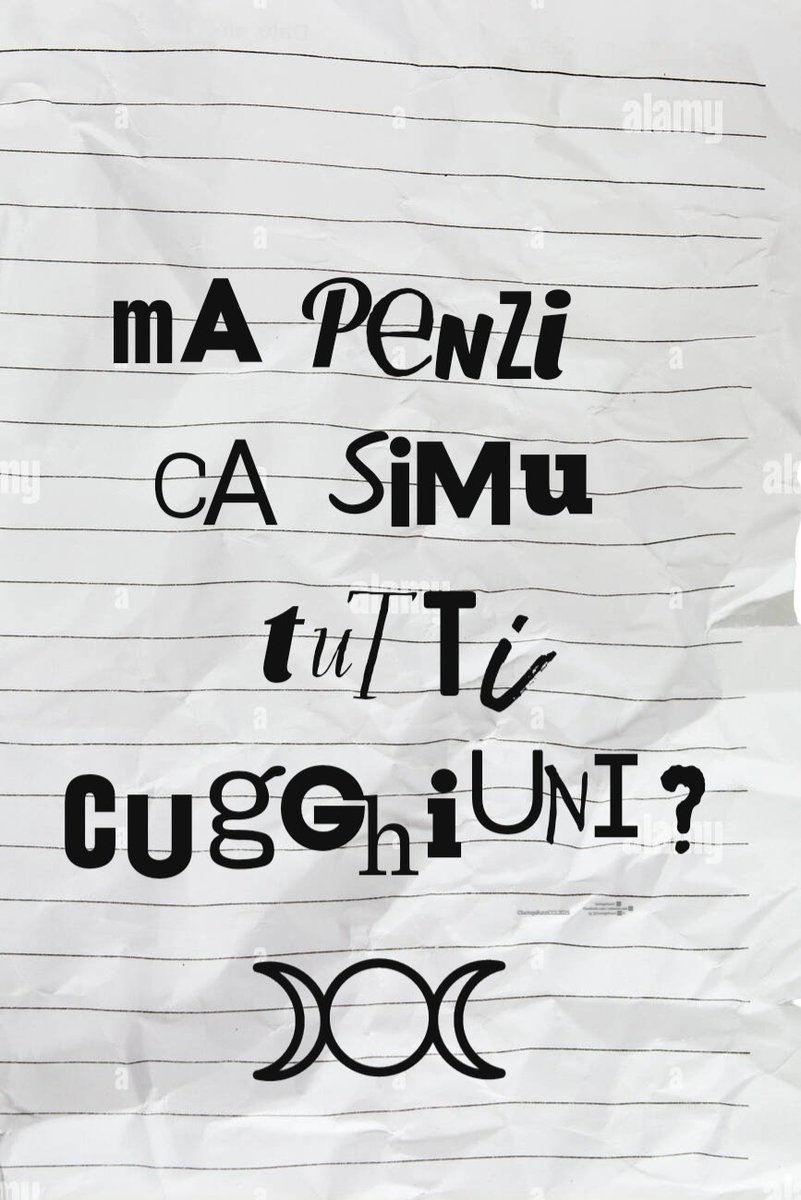 alamy
mA PenZi
CA SiMu
tuTTi
CUgGhiUNI?